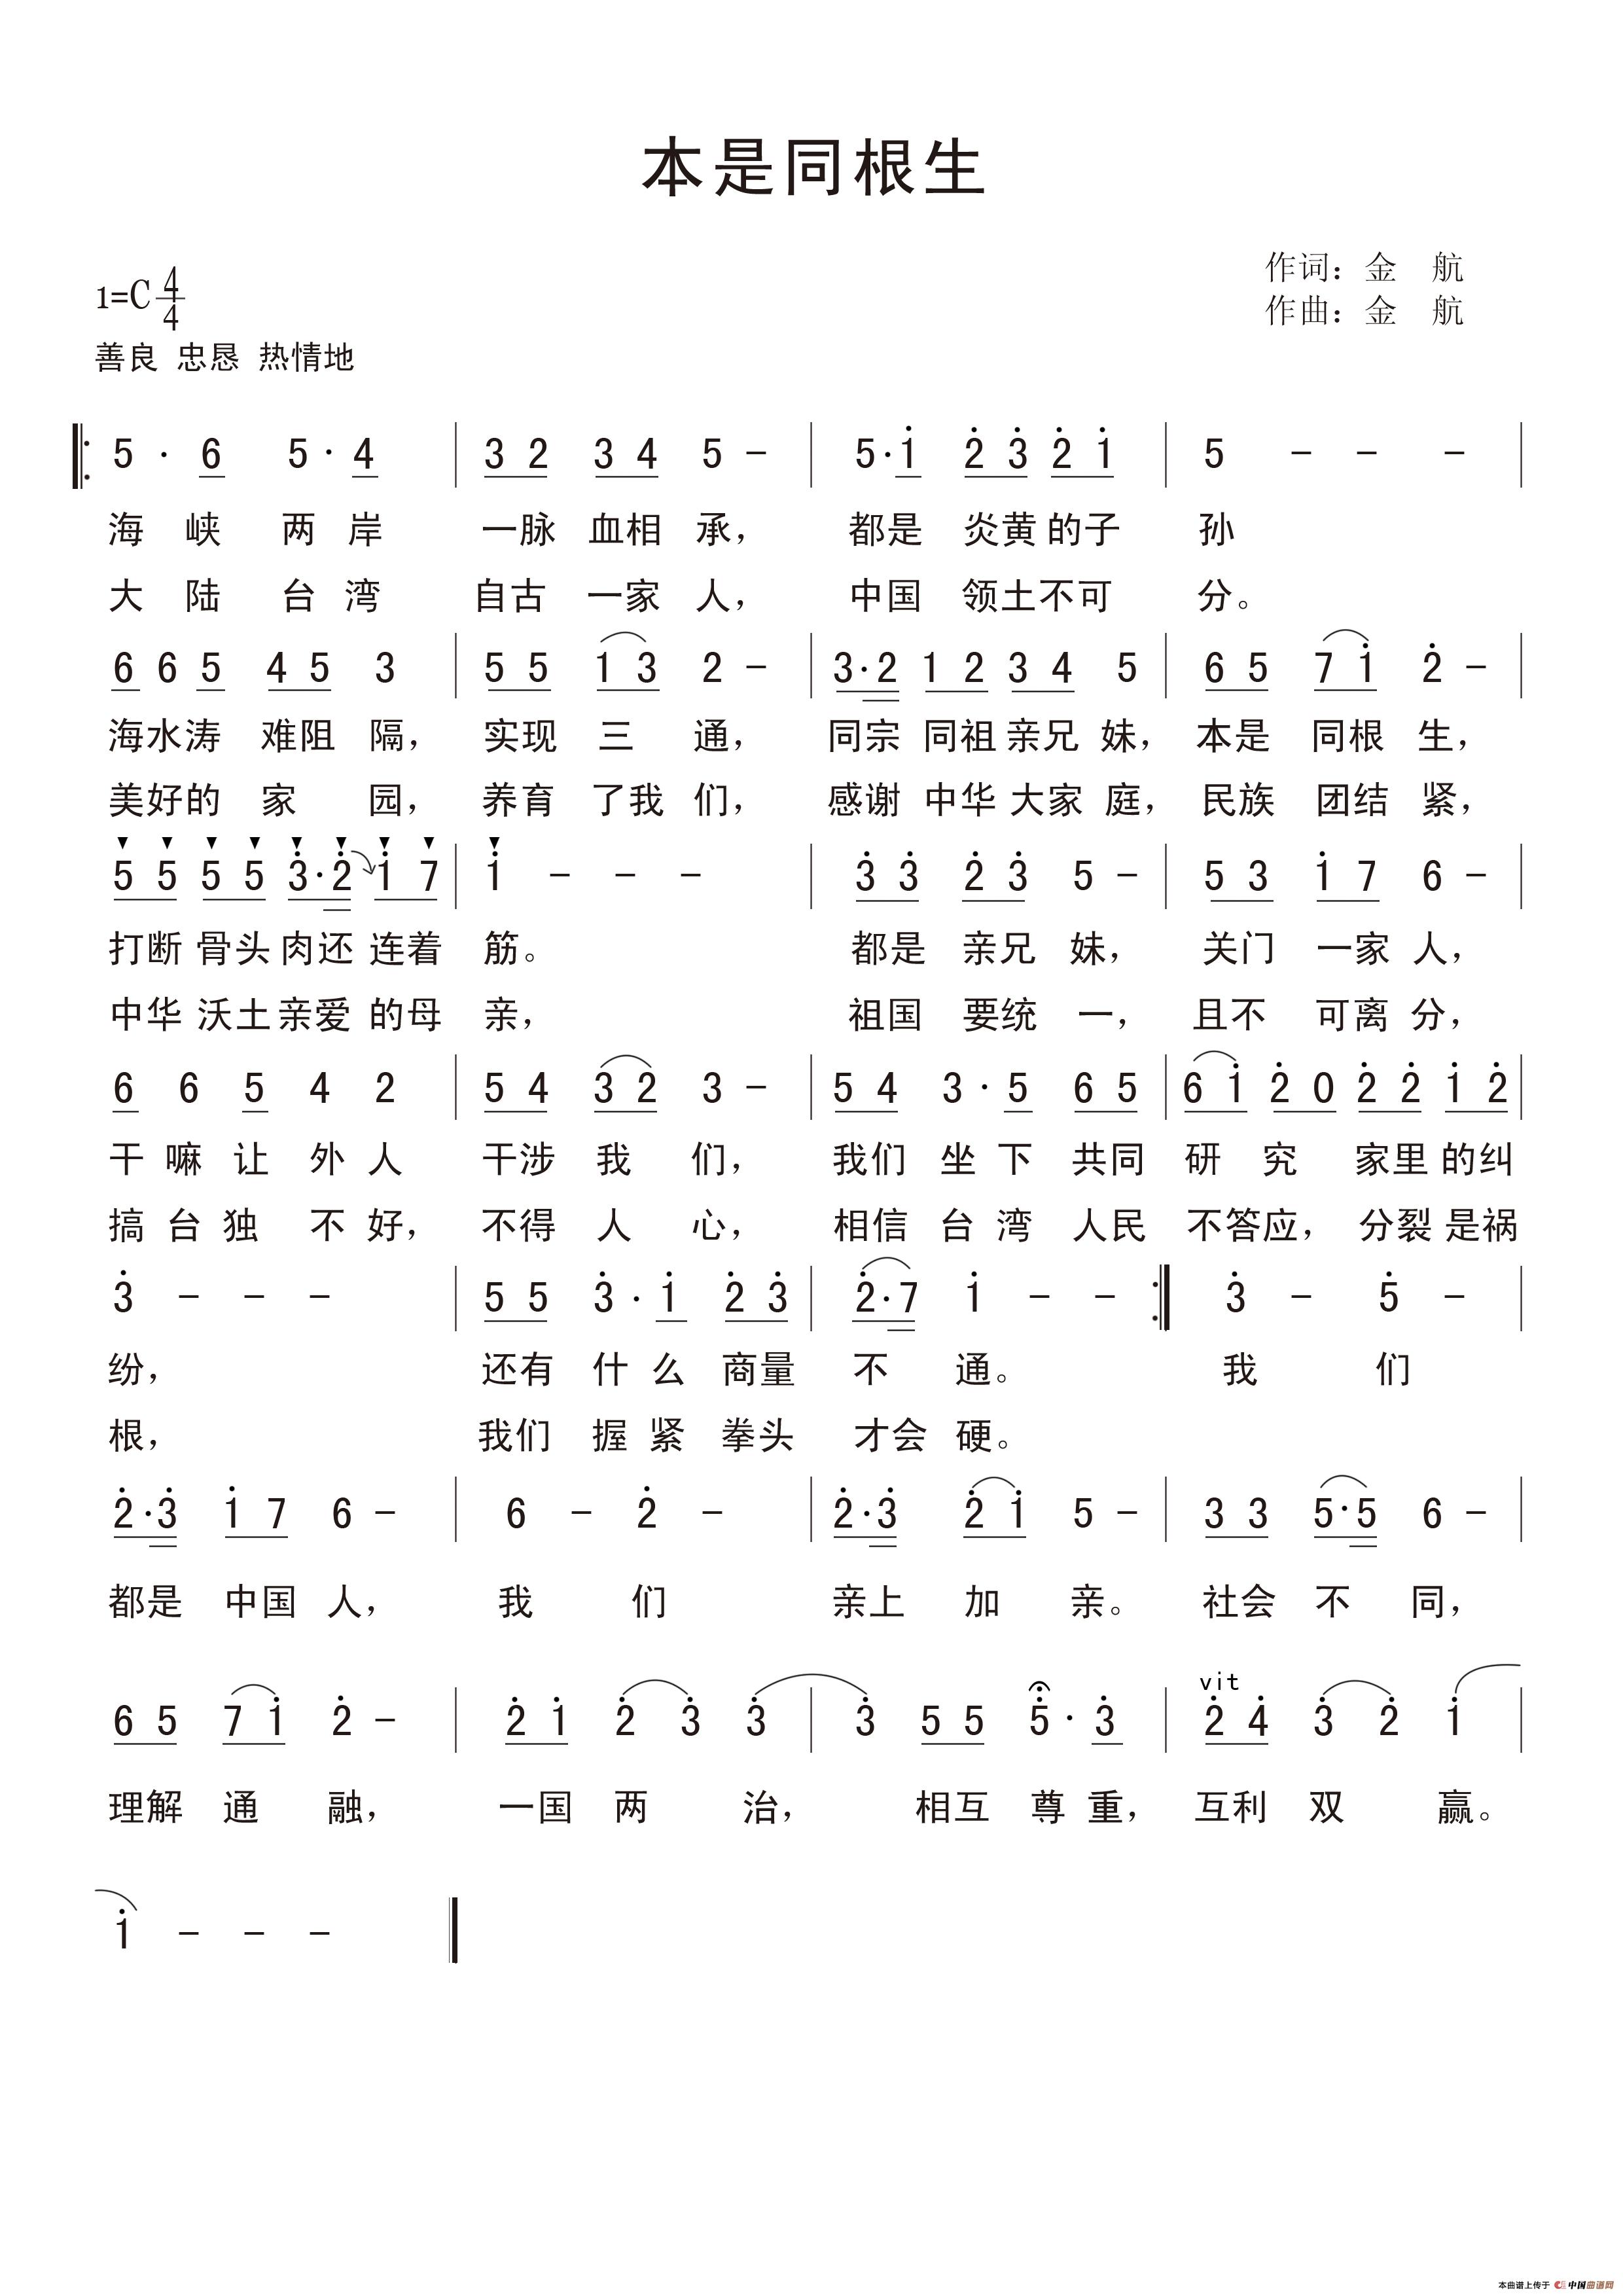 本是同根生
作词：金 航
作曲：金 航
1=C 4/4
善良 忠恳 热情地
5 · 6 5 · 4 | 3 2 3 4 5 - | 5 · 1̇ 2̇ 3̇ 2̇ 1̇ | 5 - - - |
海 峡 两 岸 一脉 血相 承， 都是 炎黄 的子 孙
大 陆 台 湾 自古 一家 人， 中国 领土不可 分。
6 6 5 4 5 3 | 5 5 1 3 2 - | 3 · 2 1 2 3 4 5 | 6 5 7 1̇ 2̇ - |
海水涛 难阻 隔， 实现 三 通， 同宗 同祖 亲兄 妹， 本是 同根 生，
美好的 家 园， 养育 了我 们， 感谢 中华 大家 庭， 民族 团结 紧，
5 5 5 5 3̇ · 2̇ 1̇ 7 | 1̇ - - - | 3̇ 3̇ 2̇ 3̇ 5 - | 5 3 1̇ 7 6 - |
打断 骨头 肉还 连着 筋。 都是 亲兄 妹， 关门 一家 人，
中华 沃土 亲爱 的母 亲， 祖国 要统 一， 且不 可离 分，
6 6 5 4 2 | 5 4 3 2 3 - | 5 4 3 · 5 6 5 | 6 1̇ 2̇ 0 2̇ 2̇ 1̇ 2̇ |
干 嘛 让 外 人 干涉 我 们， 我们 坐 下 共同 研 究 家里 的纠
搞 台 独 不 好， 不得 人 心， 相信 台 湾 人民 不答应， 分裂 是祸
3̇ - - - | 5 5 3̇ · 1̇ 2̇ 3̇ | 2̇ · 7 1̇ - - :| 3̇ - 5̇ - |
纷， 还有 什 么 商量 不 通。 我 们
根， 我们 握 紧 拳头 才会 硬。
2̇ · 3̇ 1̇ 7 6 - | 6 - 2̇ - | 2̇ · 3̇ 2̇ 1̇ 5 - | 3 3 5 · 5 6 - |
都是 中国 人， 我 们 亲上 加 亲。 社会 不 同，
vit
6 5 7 1̇ 2̇ - | 2̇ 1̇ 2̇ 3̇ 3̇ | 3̇ 5 5 5̇ · 3̇ | 2̇ 4̇ 3̇ 2̇ 1̇ |
理解 通 融， 一国 两 治， 相互 尊 重， 互利 双 赢。
1̇ - - -
本曲谱上传于 中国曲谱网